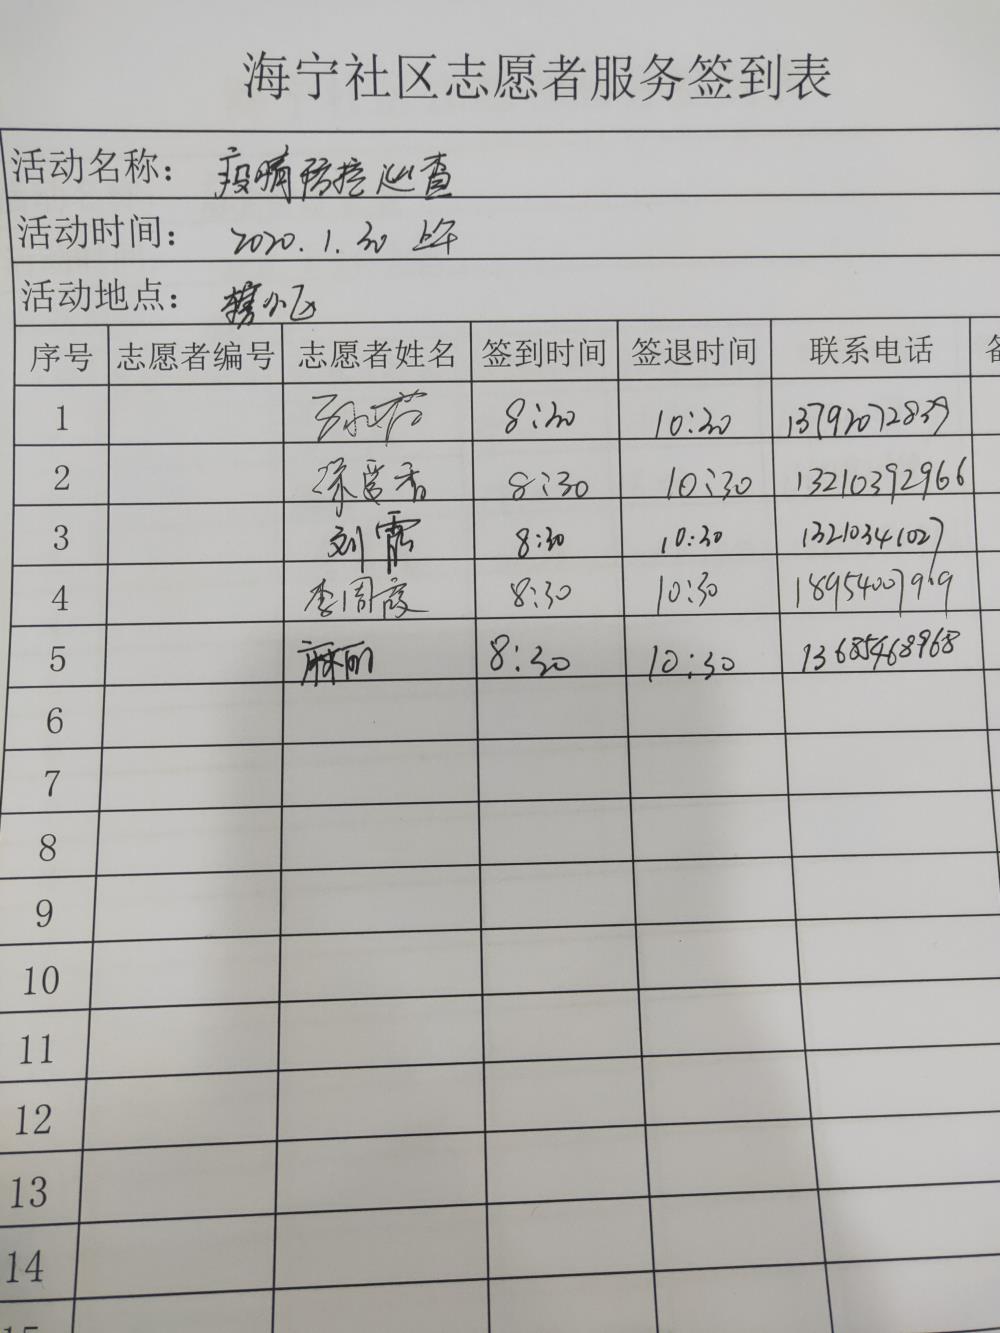 海宁社区志愿者服务签到表
活动名称： 疫情防控巡查
活动时间： 2020.1.30 上午
活动地点： 辖小区
序号 志愿者编号 志愿者姓名 签到时间 签退时间 联系电话 备
1 8:30 10:30 13792072839
2 徐爱香 8:30 10:30 13210392966
3 刘霞 8:30 10:30 13210341027
4 李周霞 8:30 10:30 18954007919
5 麻丽 8:30 10:30 13685468968
6
7
8
9
10
11
12
13
14
15